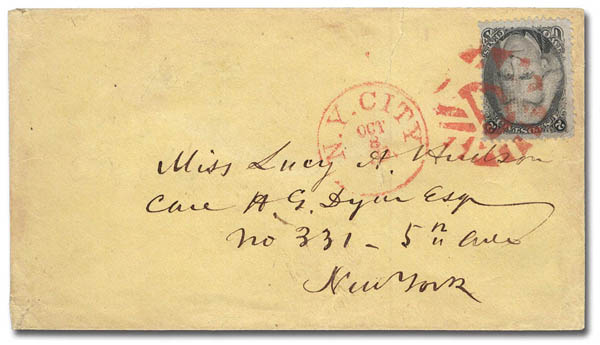 N.Y. CITY
OCT
8
Miss Lucy A. Hudson
Care H G. Dyar Esq
No 331 - 5th Ave
New York